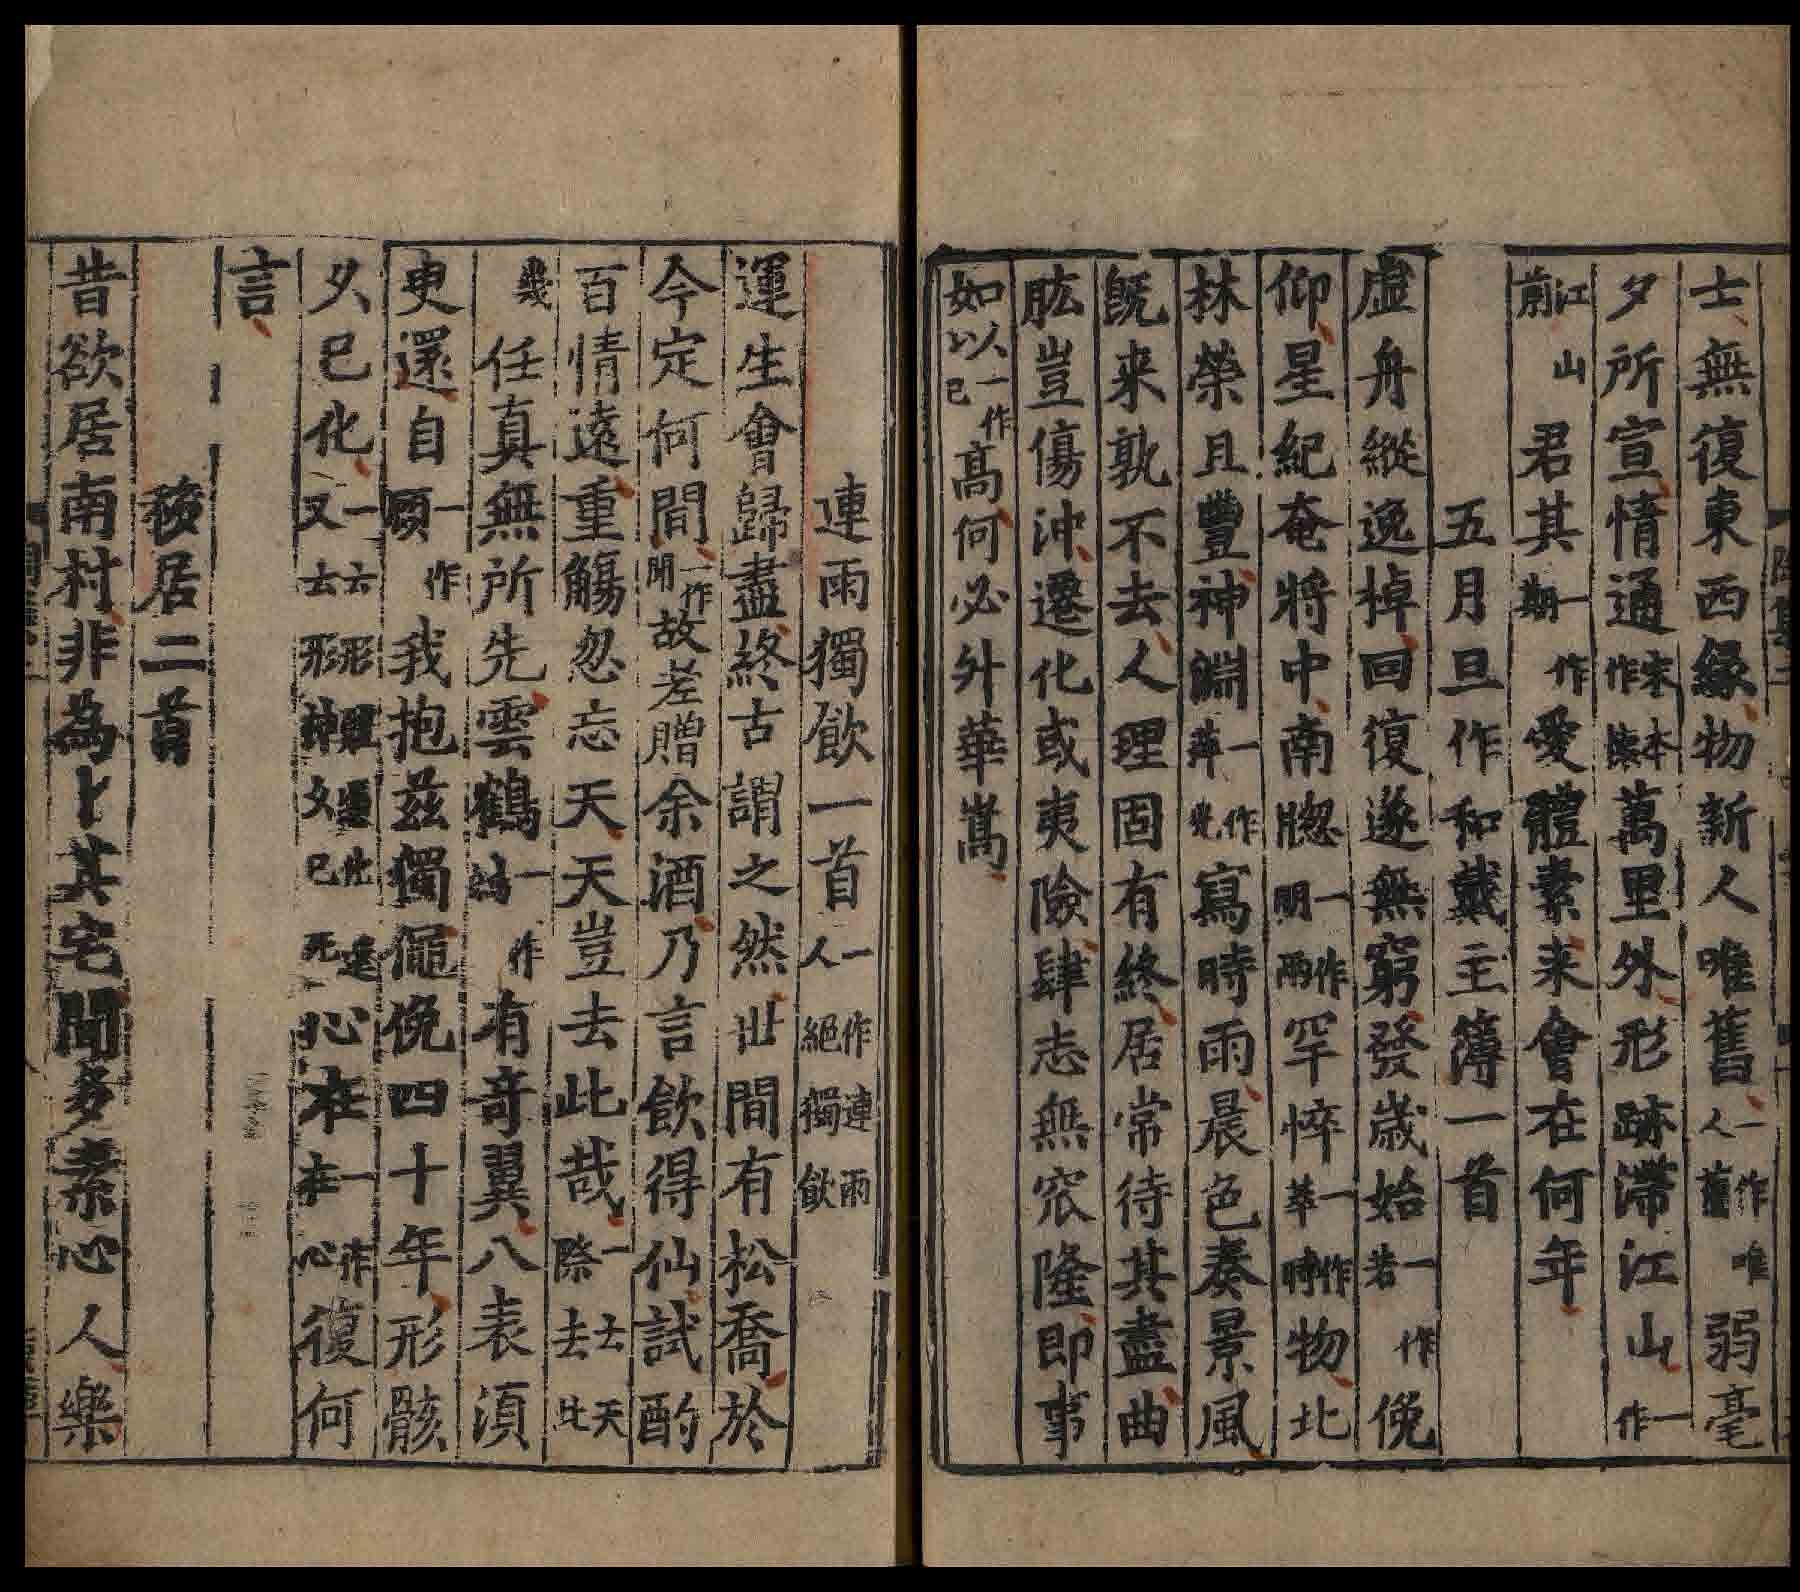 士無復東西緣物新人唯舊一作人唯舊弱毫
夕所宣情通宋本作懷萬里外形跡滯江山一作
江山前山君其一作期愛體素来會在何年
五月旦作和戴主簿一首
虛舟縱逸棹回復遂無窮發歲始一作若俛
仰星紀奄將中南牎一作明兩罕悴一作萃時物北
林榮且豐神淵一作萍光寫時雨晨色奏景風
既来孰不去人理固有終居常待其盡曲
肱豈傷沖遷化或夷險肆志無窊隆即事
如以一作如以已高何必升華嵩
連雨獨飲一首一作連雨人絕獨飲
運生會歸盡終古謂之然丗間有松喬於
今定何間一作聞故老贈余酒乃言飲得仙試酌
百情遠重觴忽忘天天豈去此哉一士天際去此
幾任真無所先雲鶴一作有奇翼八表湏
㪅還自一作顧我抱兹獨僶俛四十年形骸
久已化一云形神久已死又云形心在一作在心復何
言
移居二首
昔欲居南村非為卜其宅聞多素心人樂